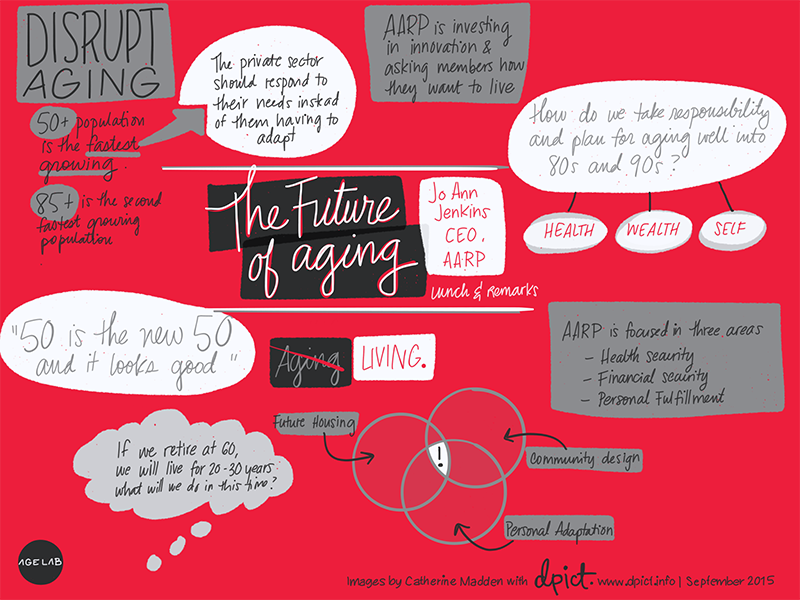 DISRUPT
AGING
50+ population
is the fastest
growing
85+ is the second
fastest growing
population
The private sector
should respond to
their needs instead
of them having to
adapt
AARP is investing
in innovation &
asking members how
they want to live
How do we take responsibility
and plan for aging well into
80s and 90s?
HEALTH
WEALTH
SELF
The Future
of aging
Jo Ann
Jenkins
CEO,
AARP
lunch & remarks
"50 is the new 50
and it looks good"
Aging
LIVING.
AARP is focused in three areas
- Health security
- Financial security
- Personal Fulfillment
If we retire at 60,
we will live for 20-30 years
what will we do in this time?
Future Housing
!
Community design
Personal Adaptation
AGELAB
Images by Catherine Madden with dpict. www.dpict.info | September 2015